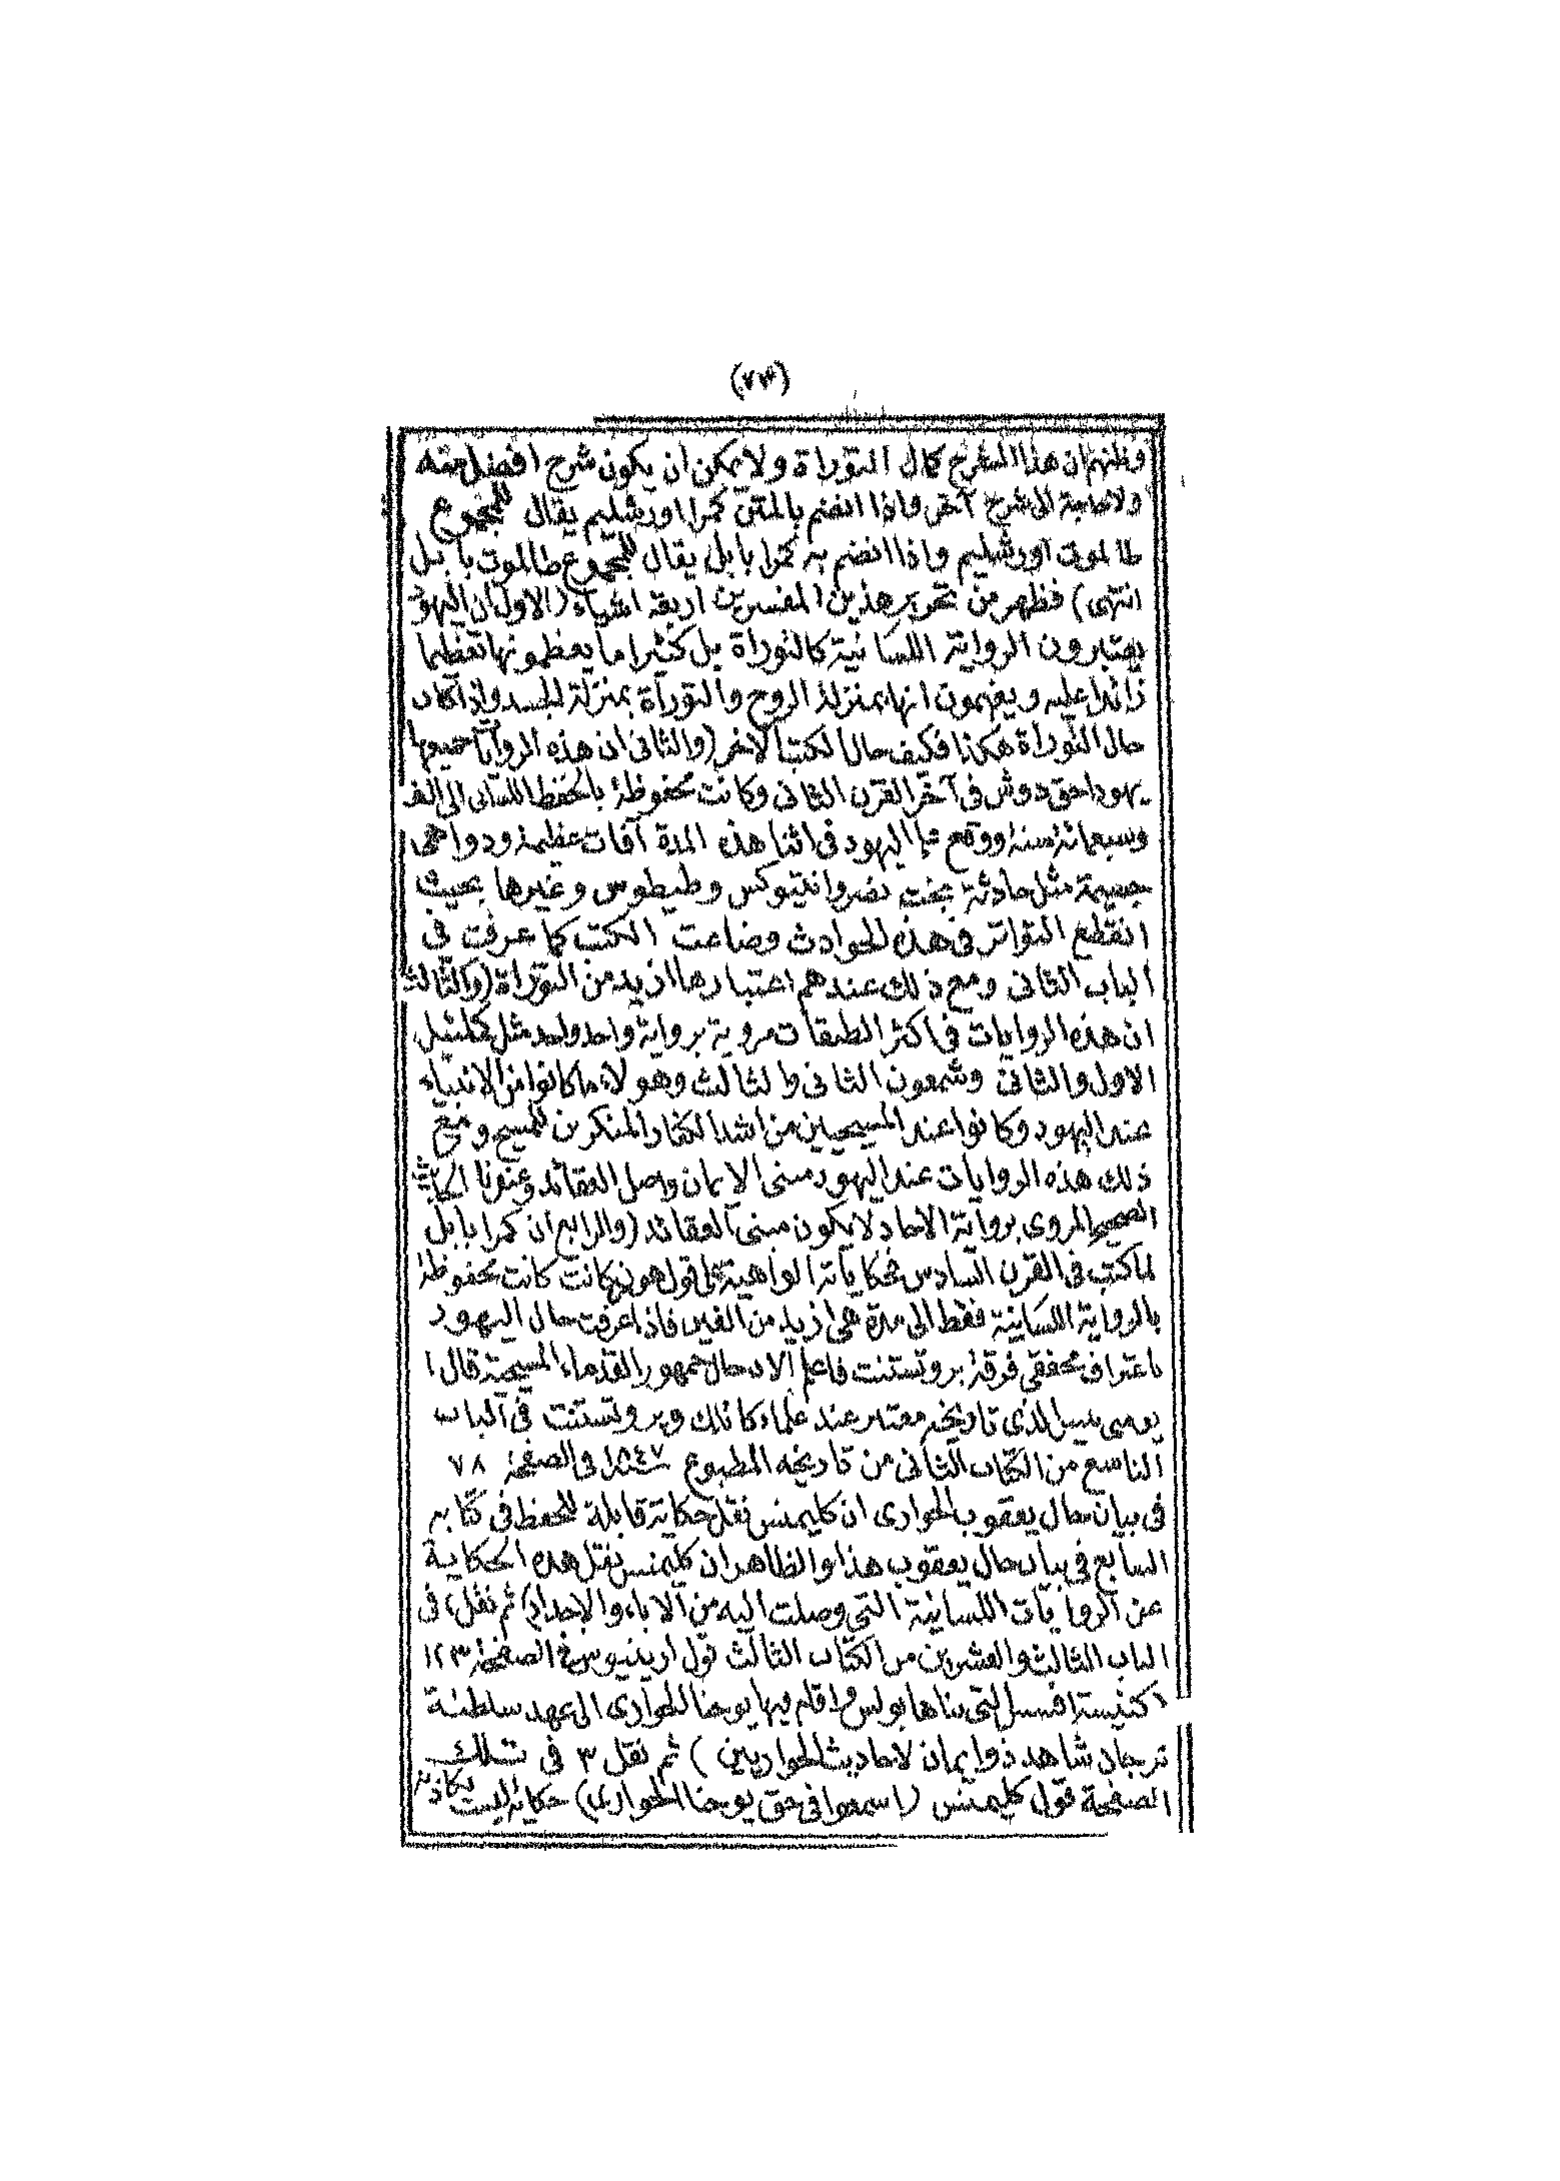 (٧٣)
وظنهم ان هذا الشرح كمال التوراة ولا يمكن ان يكون شرح افضل منه
ولا حاجة الى شرح آخر واذا انضم بالمتن كمرا اورشليم يقال للمجموع
طالموت اورشليم واذا انضم به كمرا بابل يقال للمجموع طالموت بابل
انتهى) فظهر من تحرير هذين المفسرين اربعة اشياء (الاول ان اليهود
يعتبرون الرواية اللسانية كالتوراة بل كثيرا ما يعظمونها تعظيما
زائدا عليه ويفهمون انها بمنزلة الروح والتوراة بمنزلة الجسد واذا كان
حال التوراة هكذا فكيف حال الكتب الاخر (والثانى ان هذه الروايات جمعها
يهودا حق دوش فى آخر القرن الثانى وكانت محفوظة بالحفظ اللسانى الى الف
وسبعمائة سنة ووقع على اليهود فى اثنا هذه المدة آفات عظيمة ودواهى
جسيمة مثل حادثة بخت نصر وانتيوكس وطيطوس وغيرها بحيث
انقطع التواتر فى هذه الحوادث وضاعت الكتب كما عرفت فى
الباب الثانى ومع ذلك عندهم اعتبارها ازيد من التوراة (والثالث
ان هذه الروايات فى اكثر الطبقات مروية برواية واحد واحد مثل كملئيل
الاول والثانى وشمعون الثانى والثالث وهولاء ما كانوا من الانبياء
عند اليهود وكانوا عند المسيحيين من اشد الكفار المنكرين للمسيح ومع
ذلك هذه الروايات عند اليهود مبنى الايمان واصل العقائد وعندنا الحديث
الصحيح المروى برواية الاحاد لا يكون مبنى العقائد (والرابع ان كمرا بابل
لما كتب فى القرن السادس فحكاياته الواهية على قول هورن كانت محفوظة
بالرواية اللسانية فقط الى مدة هى ازيد من الفين فاذا عرفت حال اليهود
باعتراف محققى فرقة بروتستنت فاعلم الان حال جمهور القدماء المسيحية قال ا
يوسى بيس الذى تاريخه معتبر عند علماء كاثلك وبروتستنت فى الباب
التاسع من الكتاب الثانى من تاريخه المطبوع ١٨٤٧ فى الصفحة ٧٨
فى بيان حال يعقوب الحوارى ان كليمنس نقل حكاية قابلة للحفظ فى كتابه
السابع فى بيان حال يعقوب هذا والظاهر ان كليمنس نقل هذه الحكاية
عن الروايات اللسانية التى وصلت اليه من الاباء والاجداد) ثم نقل ٢ فى
الباب الثالث والعشرين من الكتاب الثالث قول ارينيوس فى الصفحة ١٢٣
(كنيسة افسس التى بناها بولس واقام فيها يوحنا الحوارى الى عهد سلطنة
ترجان شاهد ذو ايمان لاحاديث الحواريين) ثم نقل ٣ فى تلك
الصفحة قول كليمنس (اسمعوا فى حق يوحنا الحوارى) حكاية ليست بكاذبة